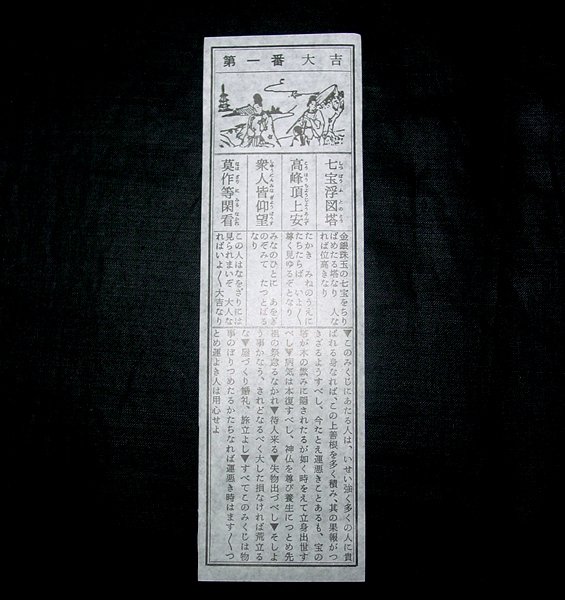 第一番 大吉
七宝浮図塔
高峰頂上安
衆人皆仰望
莫作等閑看
金銀珠玉の七宝をちり
ばめたる塔なり 人な
れば位高きなり
たかき みねのうえに
たちたらば いよ〳〵
尊く見ゆるぞとなり
みなのひとに あをぎ
のぞみて たつとばる
なり
この人はなをざりには
見られまいぞ 大人な
ればいよ〳〵大吉なり
▼このみくじにあたる人は、いせい強く多くの人に貴
ばれる身なれば、この上善根を多く積み、其の果報がつ
きざるようすべし、今たとえ運悪きことあるも、宝の
塔が木の茂みに隠されたるが如く時をえて立身出世す
べし▼病気は本復すべし、神仏を尊び養生につとめ先
祖の祭怠るなかれ▼待人来る▼失物出づべし▼そしよ
う事かなう、されどなるべく大した損なければ荒立る
な▼庭づくり婚礼、旅立よし▼すべてこのみくじは物
事のぼりつめたるかたちなれば運悪き時はます〳〵つ
とめ運よき人は用心せよ